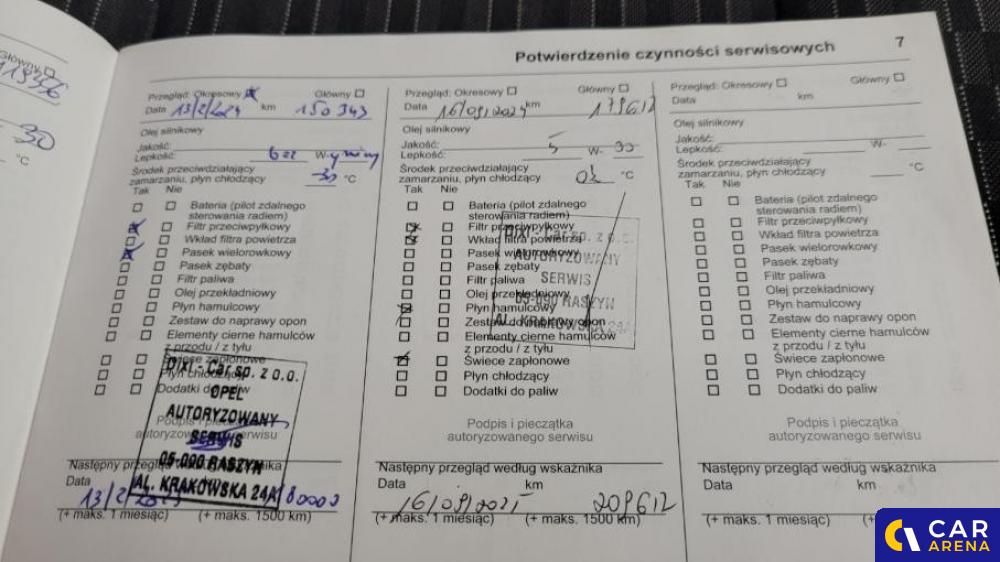 Potwierdzenie czynności serwisowych 7
Główny
Przegląd: Okresowy Główny
Data 13/2/2024 km 150 343
Olej silnikowy
Jakość:
Lepkość: W-
Środek przeciwdziałający
zamarzaniu, płyn chłodzący -30 °C
Tak Nie
Bateria (pilot zdalnego
sterowania radiem)
Filtr przeciwpyłkowy
Wkład filtra powietrza
Pasek wielorowkowy
Pasek zębaty
Filtr paliwa
Olej przekładniowy
Płyn hamulcowy
Zestaw do naprawy opon
Elementy cierne hamulców
z przodu / z tyłu
Świece zapłonowe
Płyn chłodzący
Dodatki do paliw
DIXI - Car sp. z o.o.
OPEL
AUTORYZOWANY
SERWIS
05-090 RASZYN
AL. KRAKOWSKA 24A
Podpis i pieczątka
autoryzowanego serwisu
Następny przegląd według wskaźnika
Data 13/2/ 180000
(+ maks. 1 miesiąc) (+ maks. 1500 km)
Przegląd: Okresowy Główny
Data 16/09/2024 km 179612
Olej silnikowy
Jakość:
Lepkość: 5 W- 30
Środek przeciwdziałający
zamarzaniu, płyn chłodzący °C
Tak Nie
Bateria (pilot zdalnego
sterowania radiem)
Filtr przeciwpyłkowy
Wkład filtra powietrza
Pasek wielorowkowy
Pasek zębaty
Filtr paliwa
Olej przekładniowy
Płyn hamulcowy
Zestaw do naprawy opon
Elementy cierne hamulców
z przodu / z tyłu
Świece zapłonowe
Płyn chłodzący
Dodatki do paliw
DIXI - Car sp. z o.o.
AUTORYZOWANY
SERWIS
05-090 RASZYN
AL. KRAKOWSKA 24A
Podpis i pieczątka
autoryzowanego serwisu
Następny przegląd według wskaźnika
Data km
16/09/2025 209612
(+ maks. 1 miesiąc) (+ maks. 1500 km)
Przegląd: Okresowy Główny
Data km
Olej silnikowy
Jakość:
Lepkość: W-
Środek przeciwdziałający
zamarzaniu, płyn chłodzący °C
Tak Nie
Bateria (pilot zdalnego
sterowania radiem)
Filtr przeciwpyłkowy
Wkład filtra powietrza
Pasek wielorowkowy
Pasek zębaty
Filtr paliwa
Olej przekładniowy
Płyn hamulcowy
Zestaw do naprawy opon
Elementy cierne hamulców
z przodu / z tyłu
Świece zapłonowe
Płyn chłodzący
Dodatki do paliw
Podpis i pieczątka
autoryzowanego serwisu
Następny przegląd według wskaźnika
Data km
(+ maks. 1 miesiąc) (+ maks. 1500 km)
CAR
ARENA